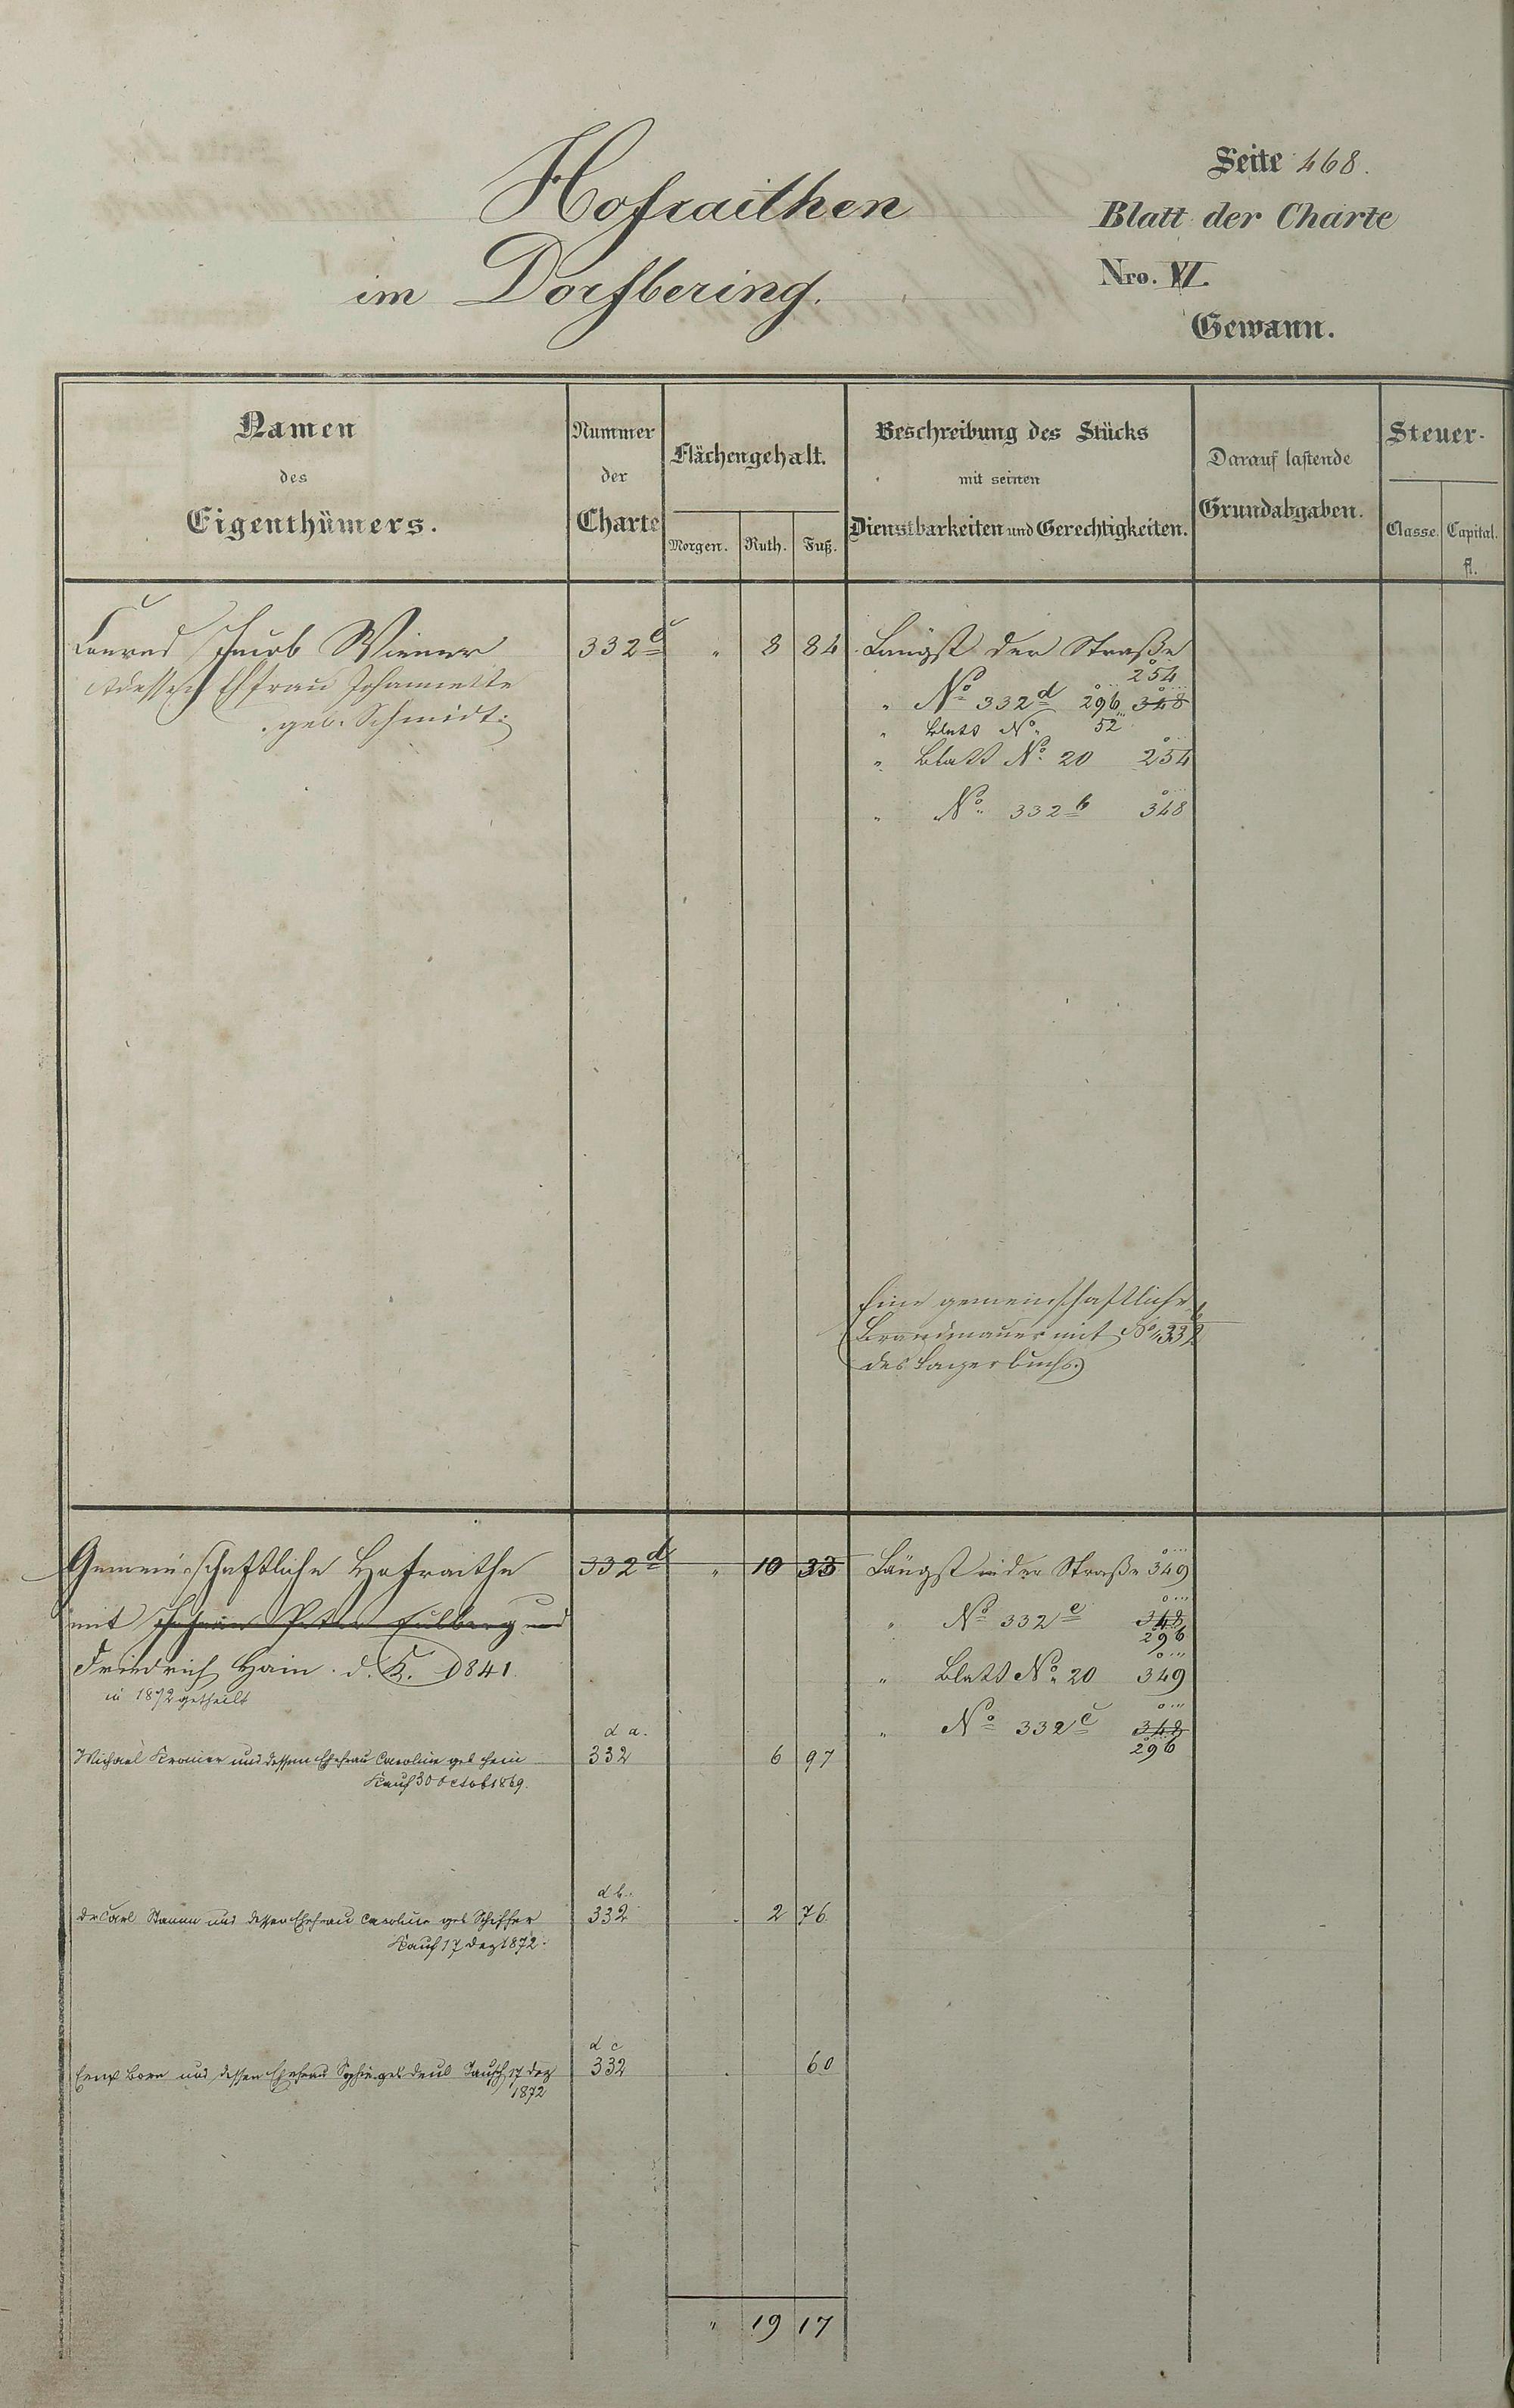 Seite 468.
Hofraithen
Blatt der Charte
im Dorfbering.
Nro. VI.
Gewann.
Namen
des
Eigenthümers.
Nummer
der
Charte
Flächengehalt.
Morgen. Ruth. Fuß.
Beschreibung des Stücks
mit seinen
Dienstbarkeiten und Gerechtigkeiten.
Darauf lastende
Grundabgaben.
Steuer-
Classe. Capital.
fl.
Conrad Jacob Wiener 332 c " 8 84 Längst der Straße
dessen Ehfrau Johannette
geb. Schmidt.
254
" No 332 d 296 348
" Blatt No 52
" Blatt No 20 254
" No 332 b 348
Eine gemeinschaftliche
Brandmauer mit No 332 b
des Lagerbuchs.
Gemeinschaftliche Hofraithe 332 d " 10 33 Längst der Straße 349
mit Johann Peter Fulberg und
" No 332 e 348
296
Friedrich Hain. d. K. 1841.
" Blatt No 20 349
in 1872 getheilt
" No 332 c 348
296
d a.
Michael Kromer und dessen Ehefrau Caroline geb Hein 332 6 97
Kauf 30 Octob 1869.
d b.
Dr Carl Stamm und dessen Ehefrau Caroline geb Schiffer 332 2 76
Kauf 17 Dez 1872.
d c
Born und dessen Ehefrau geb Tausch 17 Dez 332 60
1872
" 19 17